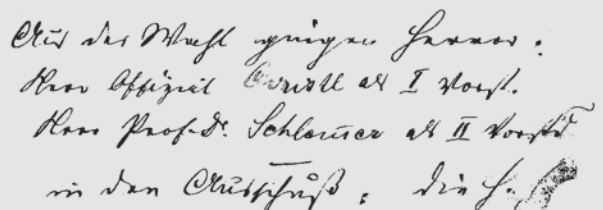 Aus der Wahl gingen hervor:
Herr Offizial als I Vorst.
Herr Prof. Dr. Schlemmer als II Vorstd
in den Ausschuß: die H.